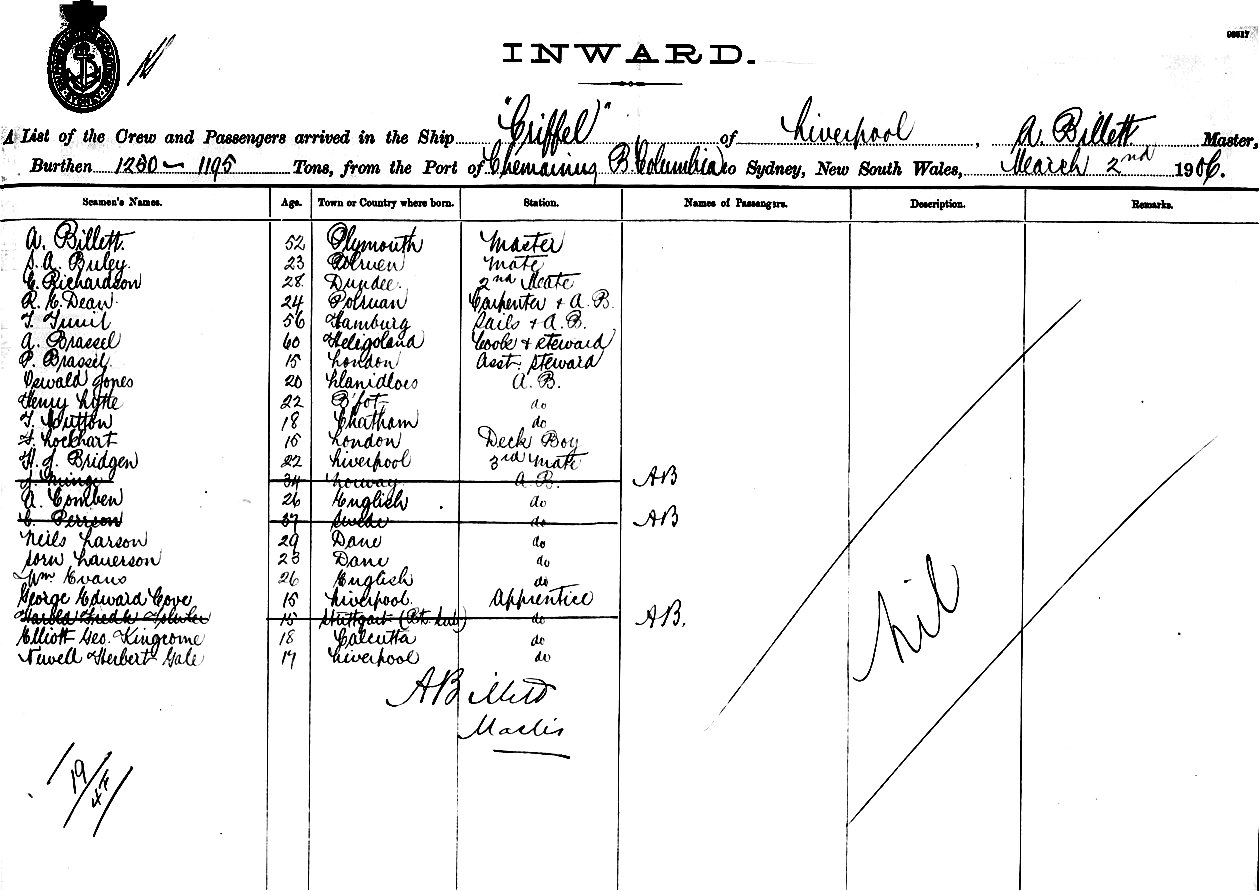 INWARD.
A List of the Crew and Passengers arrived in the Ship "Criffel" of Liverpool, A. Billett Master,
Burthen 1280 — 1195 Tons, from the Port of Chemaining B. Columbia to Sydney, New South Wales, March 2nd 1906.
Seamen's Names. Age. Town or Country where born. Station. Names of Passengers. Description. Remarks.
A. Billett. 52 Plymouth Master
S. A. Buley. 23 Polruen Mate
C. Richardson 28 Dundee. 2nd Mate
R. C. Dean 24 Polruan Carpenter & A.B.
56 Hamburg Sails & A.B.
A. Brassel 60 Heligoland Cook & Steward
P. Brassel. 15 London Asst. Steward
Oswald Jones 20 Llanidloes A.B.
Henry Lyttle 22 do
T. Sutton 18 Chatham do
Lockhart 15 London Deck Boy
H. J. Bridgen 22 Liverpool 3rd Mate
34 Norway A.B. AB
A. Comben 26 English do
C. Persson 37 Swede do AB
Neils Larson 29 Dane do
Sorn Laverson 23 Dane do
Wm Evans 26 English do
George Edward Cove 15 Liverpool Apprentice
Harold Fredk 15 Stuttgart do AB.
Elliott Geo. Kingcome 18 Calcutta do
Newell Herbert Gale 17 Liverpool do
nil
A Billett
Master
19/4